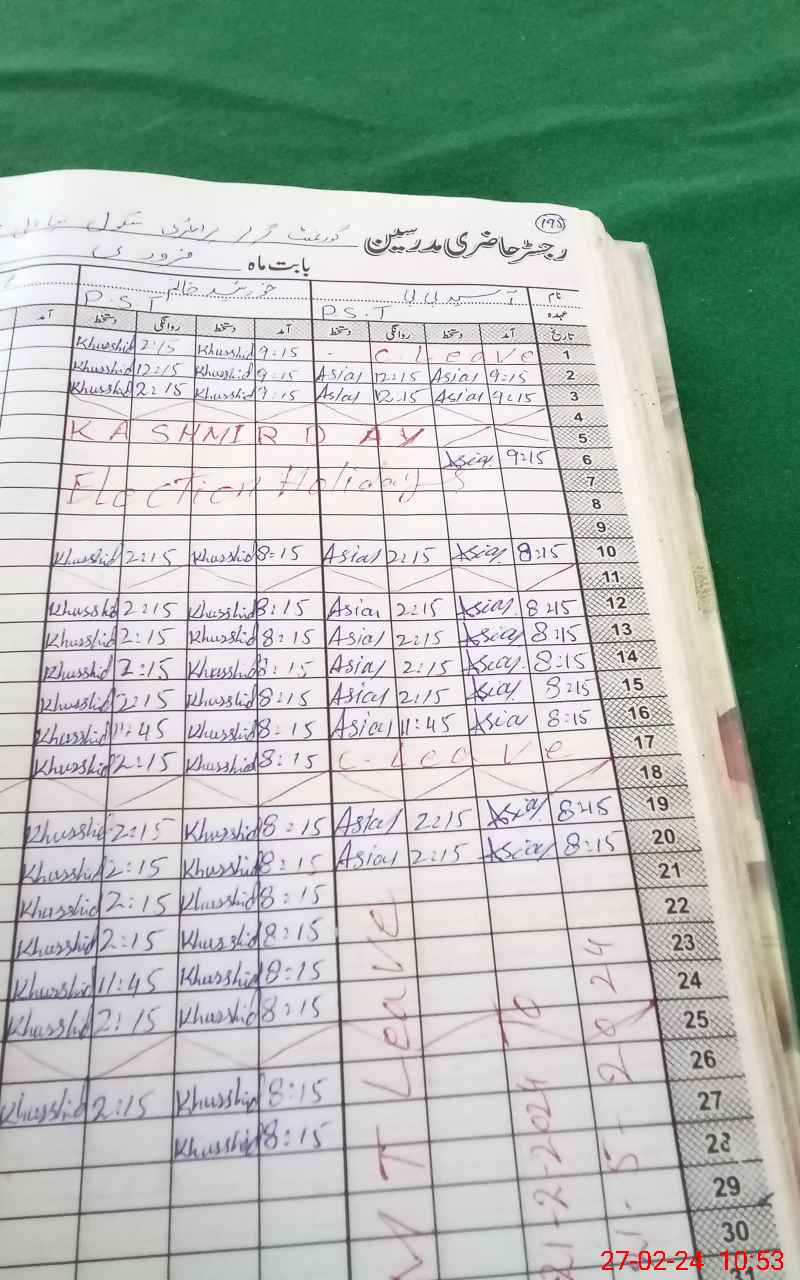 ۱۹۵
رجسٹر حاضری مدرسین گورنمنٹ گرلز پرائمری سکول
بابت ماہ فروری
نام آسیہ بی بی خورشید خانم
عہدہ P.S.T P.S.T
تاریخ آمد دستخط روانگی دستخط آمد دستخط روانگی دستخط آمد
Khusshid 2:15 Khusshid 9:15 - C. Leave 1
Khusshid 12:15 Khusshid 9:15 Asia 12:15 Asia 9:15 2
Khusshid 2:15 Khusshid 9:15 Asia 12:15 Asia 9:15 3
4
KASHMIR DAY 5
Asia 9:15 6
Election Holidays 7
8
9
Khusshid 2:15 Khusshid 8:15 Asia 2:15 Asia 8:15 10
11
Khusshid 2:15 Khusshid 8:15 Asia 2:15 Asia 8:15 12
Khusshid 2:15 Khusshid 8:15 Asia 2:15 Asia 8:15 13
Khusshid 2:15 Khusshid 8:15 Asia 2:15 Asia 8:15 14
Khusshid 2:15 Khusshid 8:15 Asia 2:15 Asia 8:15 15
Khusshid 11:45 Khusshid 8:15 Asia 11:45 Asia 8:15 16
Khusshid 2:15 Khusshid 8:15 C-Leave 17
18
Khusshid 2:15 Khusshid 8:15 Asia 2:15 Asia 8:15 19
Khusshid 2:15 Khusshid 8:15 Asia 2:15 Asia 8:15 20
Khusshid 2:15 Khusshid 8:15 21
Khusshid 2:15 Khusshid 8:15 22
Khusshid 11:45 Khusshid 8:15 23
Khusshid 2:15 Khusshid 8:15 24
25
Khusshid 2:15 Khusshid 8:15 26
Khusshid 8:15 27
28
29
30
31
MT Leave
21-2-2024 To
21-5-2024
27-02-24 10:53